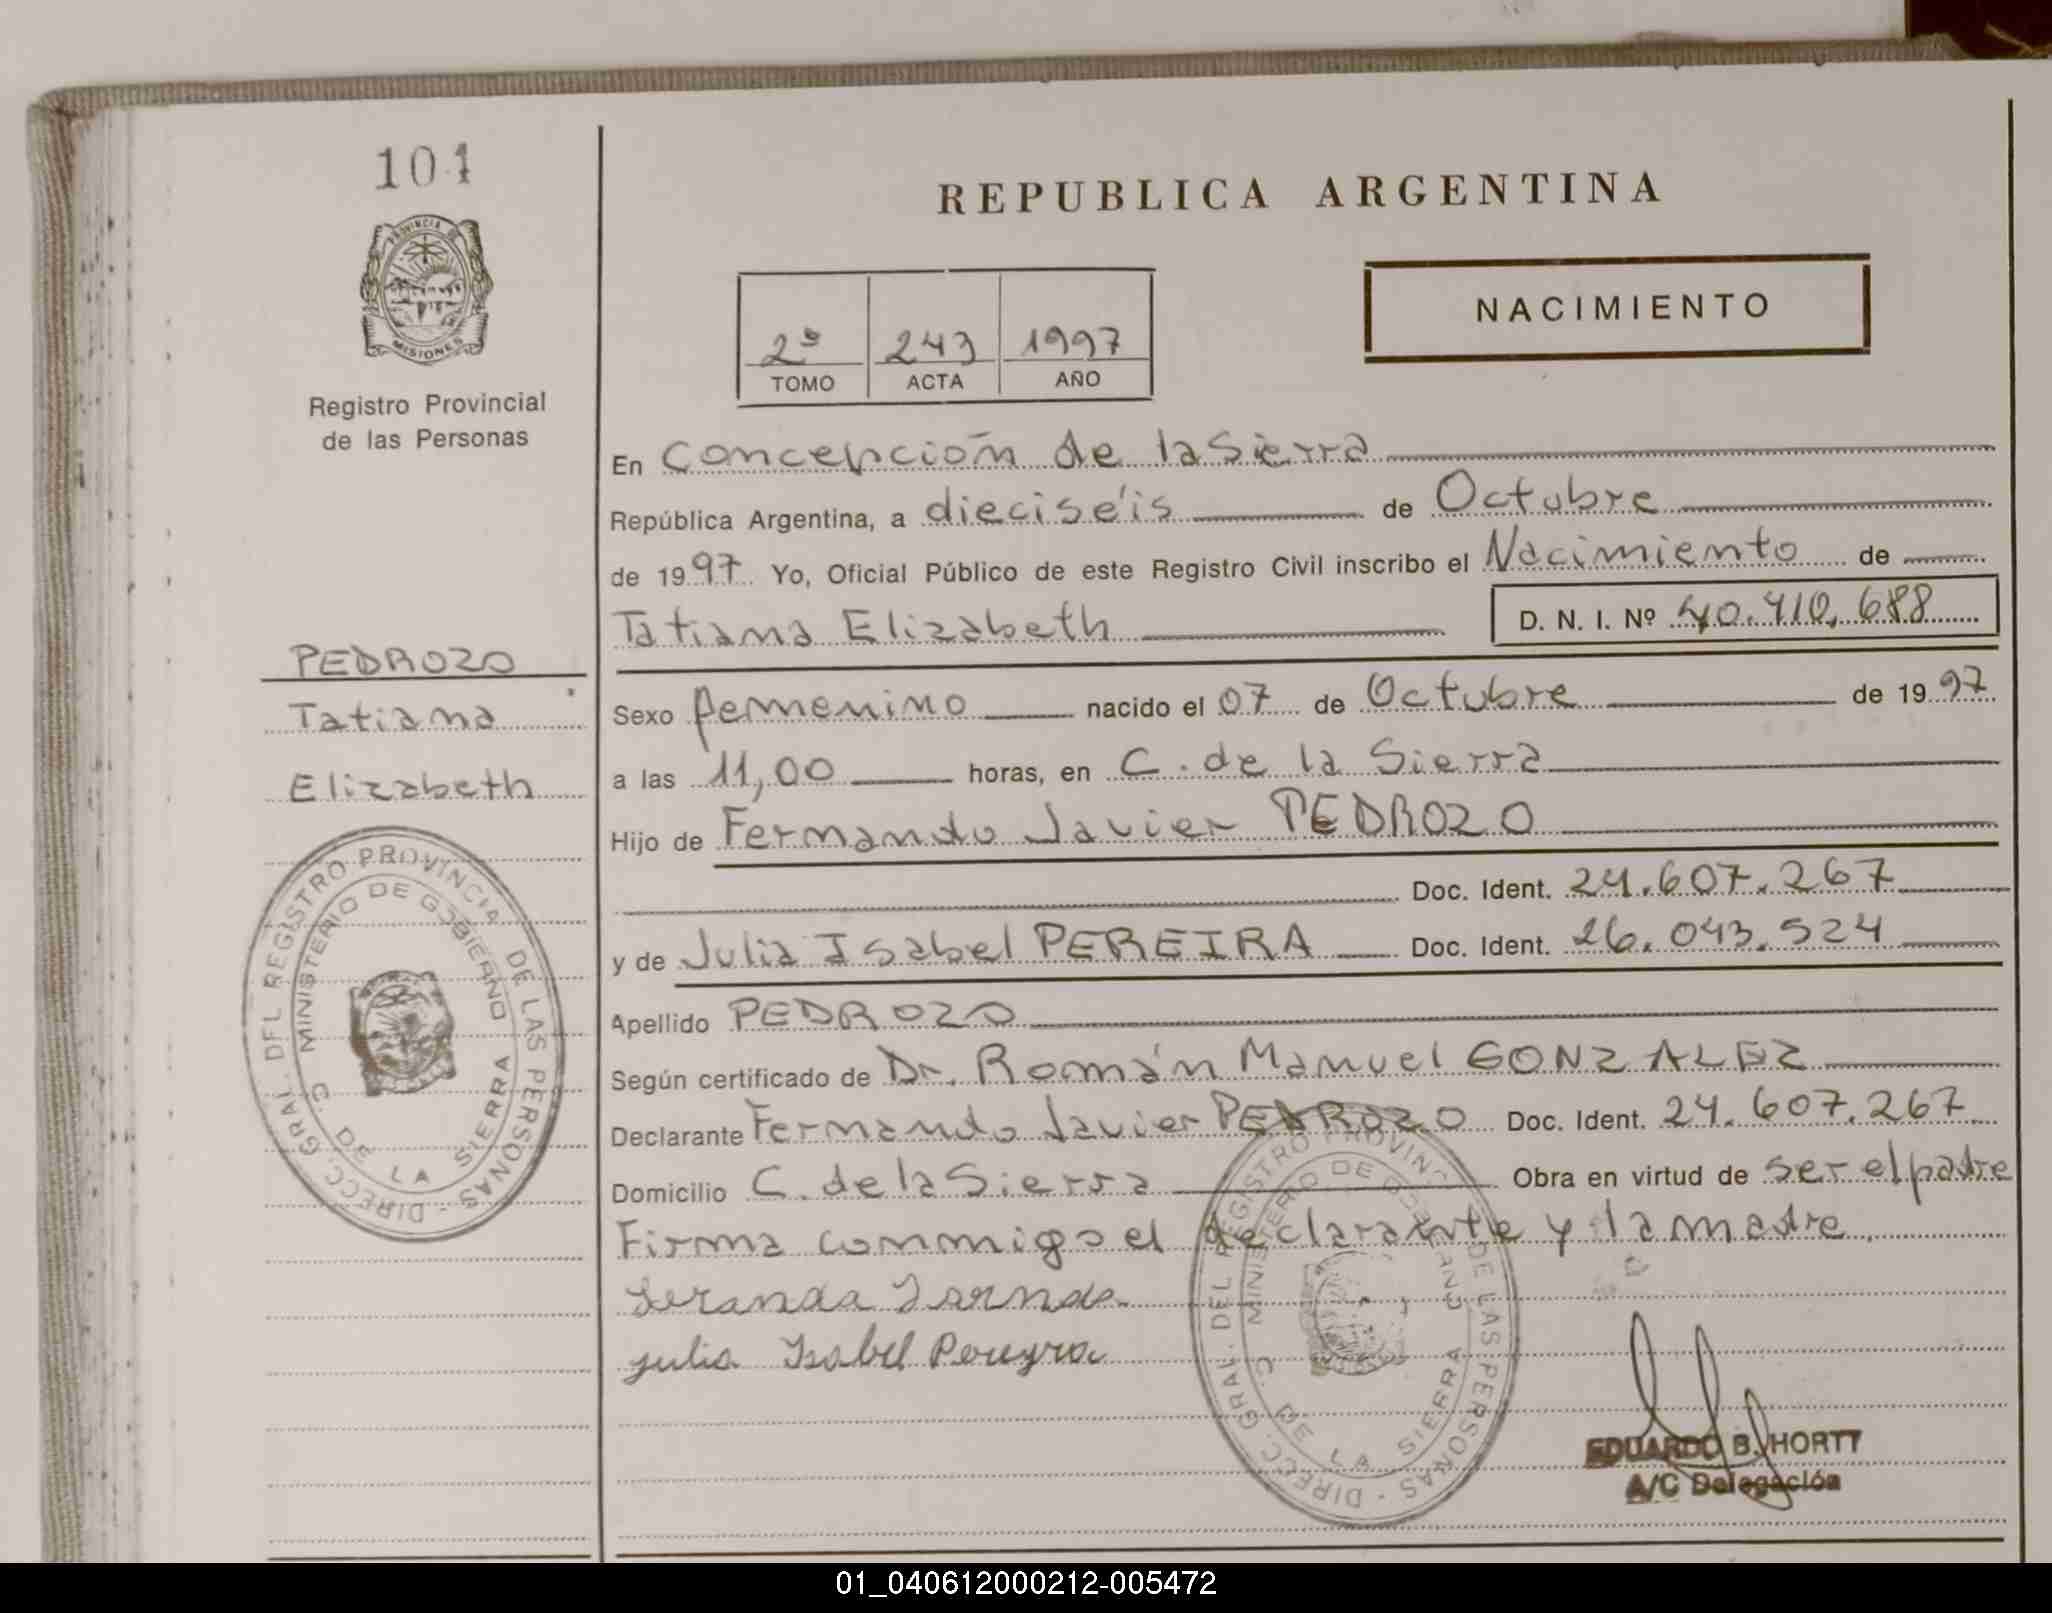 101
PROVINCIA DE
MISIONES
Registro Provincial
de las Personas
PEDROZO
Tatiana
Elizabeth
DIRECC. GRAL. DEL REGISTRO PROVINCIAL DE LAS PERSONAS
MINISTERIO DE GOBIERNO
C. DE LA SIERRA
REPUBLICA ARGENTINA
NACIMIENTO
2º 243 1997
TOMO ACTA AÑO
En Concepción de la Sierra
República Argentina, a dieciséis de Octubre
de 1997 Yo, Oficial Público de este Registro Civil inscribo el Nacimiento de
Tatiana Elizabeth D. N. I. Nº 40.410.688
Sexo femenino nacido el 07 de Octubre de 1997
a las 11,00 horas, en C. de la Sierra
Hijo de Fernando Javier PEDROZO
Doc. Ident. 24.607.267
y de Julia Isabel PEREIRA Doc. Ident. 26.043.524
Apellido PEDROZO
Según certificado de Dr. Román Manuel GONZALEZ
Declarante Fernando Javier PEDROZO Doc. Ident. 24.607.267
Domicilio C. de la Sierra Obra en virtud de ser el padre
Firma conmigo el declarante y la madre.
Julia Isabel Pereyra
DIRECC. GRAL. DEL REGISTRO PROVINCIAL DE LAS PERSONAS
MINISTERIO DE GOBIERNO
C. DE LA SIERRA
EDUARDO B. HORTT
A/C Delegación
01_040612000212-005472